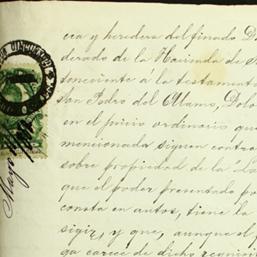 cia y heredera del finado D
derado de la Hacienda de
concerniente á la testament
San Pedro del Alamo, Dolo
en el juicio ordinario que
mencionada siguen contra
sobre propiedad de la La
que el poder presentado po
consta en autos, tiene la
sigir, y que, aunque el
ga carece de dicho requisi
Mayo